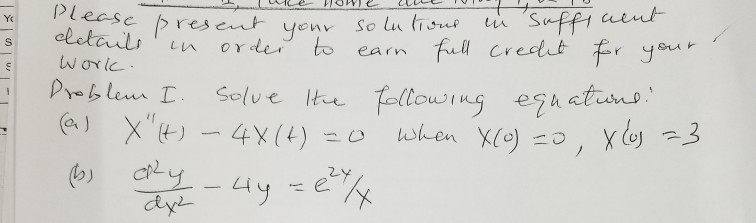 Please present your solutions in sufficient
details in order to earn full credit for your
work.
Problem I. Solve the following equations:
(a) X''(t) - 4X(t) = 0 when X(0) = 0, X'(0) = 3
(b) d²y/dx² - 4y = e^{2x}/x